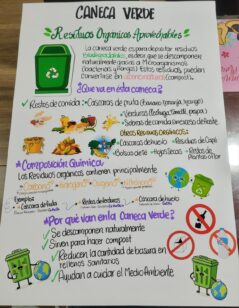 CANECA VERDE
Residuos Organicos Aprovechables
La caneca verde es para depositar residuos
Biodegradables, es decir, que se descomponen
naturalmente gracias a Microorganismos
(bacterias y hongos). Estos residuos, pueden
Convertirse en abono natural (compost).
¿Que va en ésta caneca?
Restos de comida:
• Cascaras de fruta
• Verduras
• Sobras de comida
Otros Residuos Organicos:
• Cascaras de huevo
• Residuos de Café
• Bolsas de té
• Hojas Secas
• Restos de
Plantas o Flor
Composición Química
Los Residuos organicos, contienen principalmente
Carbono
Hidrogeno
Oxigeno
Nitrogeno
Ejemplos:
• Cascara de fruta
• Cascara de huevo
¿Por qué van en la Caneca Verde?
Se descomponen naturalmente
Sirven para hacer compost
Reducen la cantidad de basura en
rellenos Sanitarios
Ayudan a cuidar el Medio Ambiente